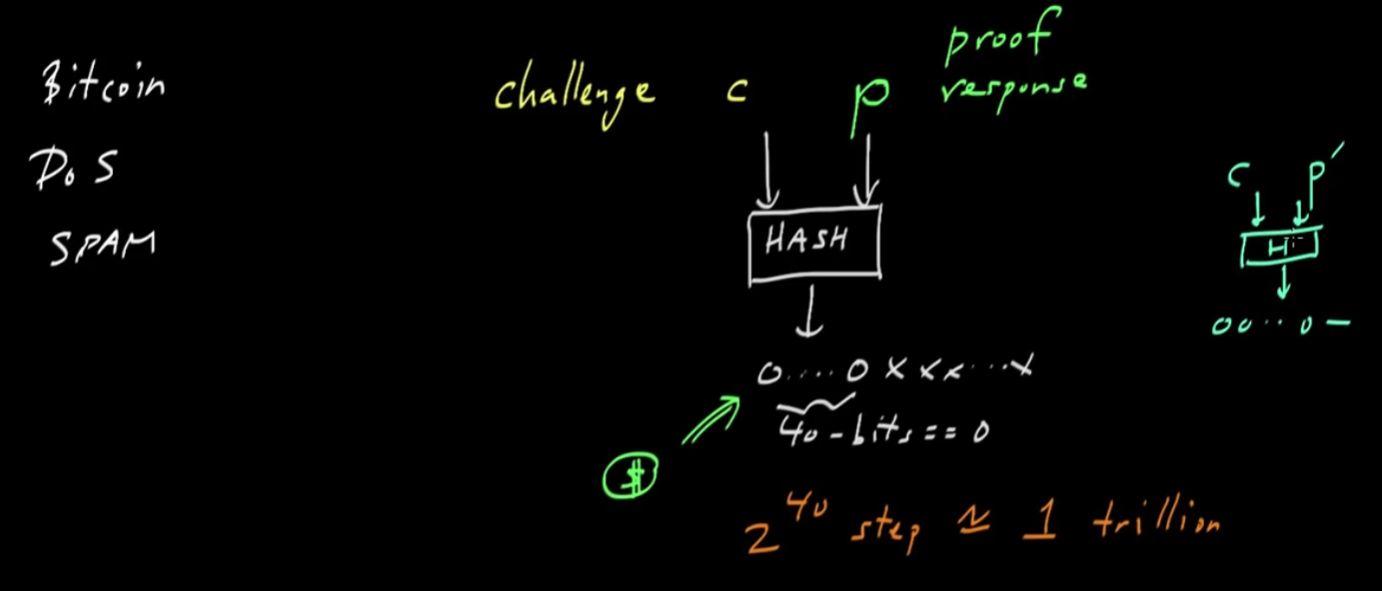 Bitcoin
DoS
SPAM
challenge c p proof
response
HASH
0....0 x x x ... x
40-bits == 0
$
2^40 step ≈ 1 trillion
c p′
H
00..0 –